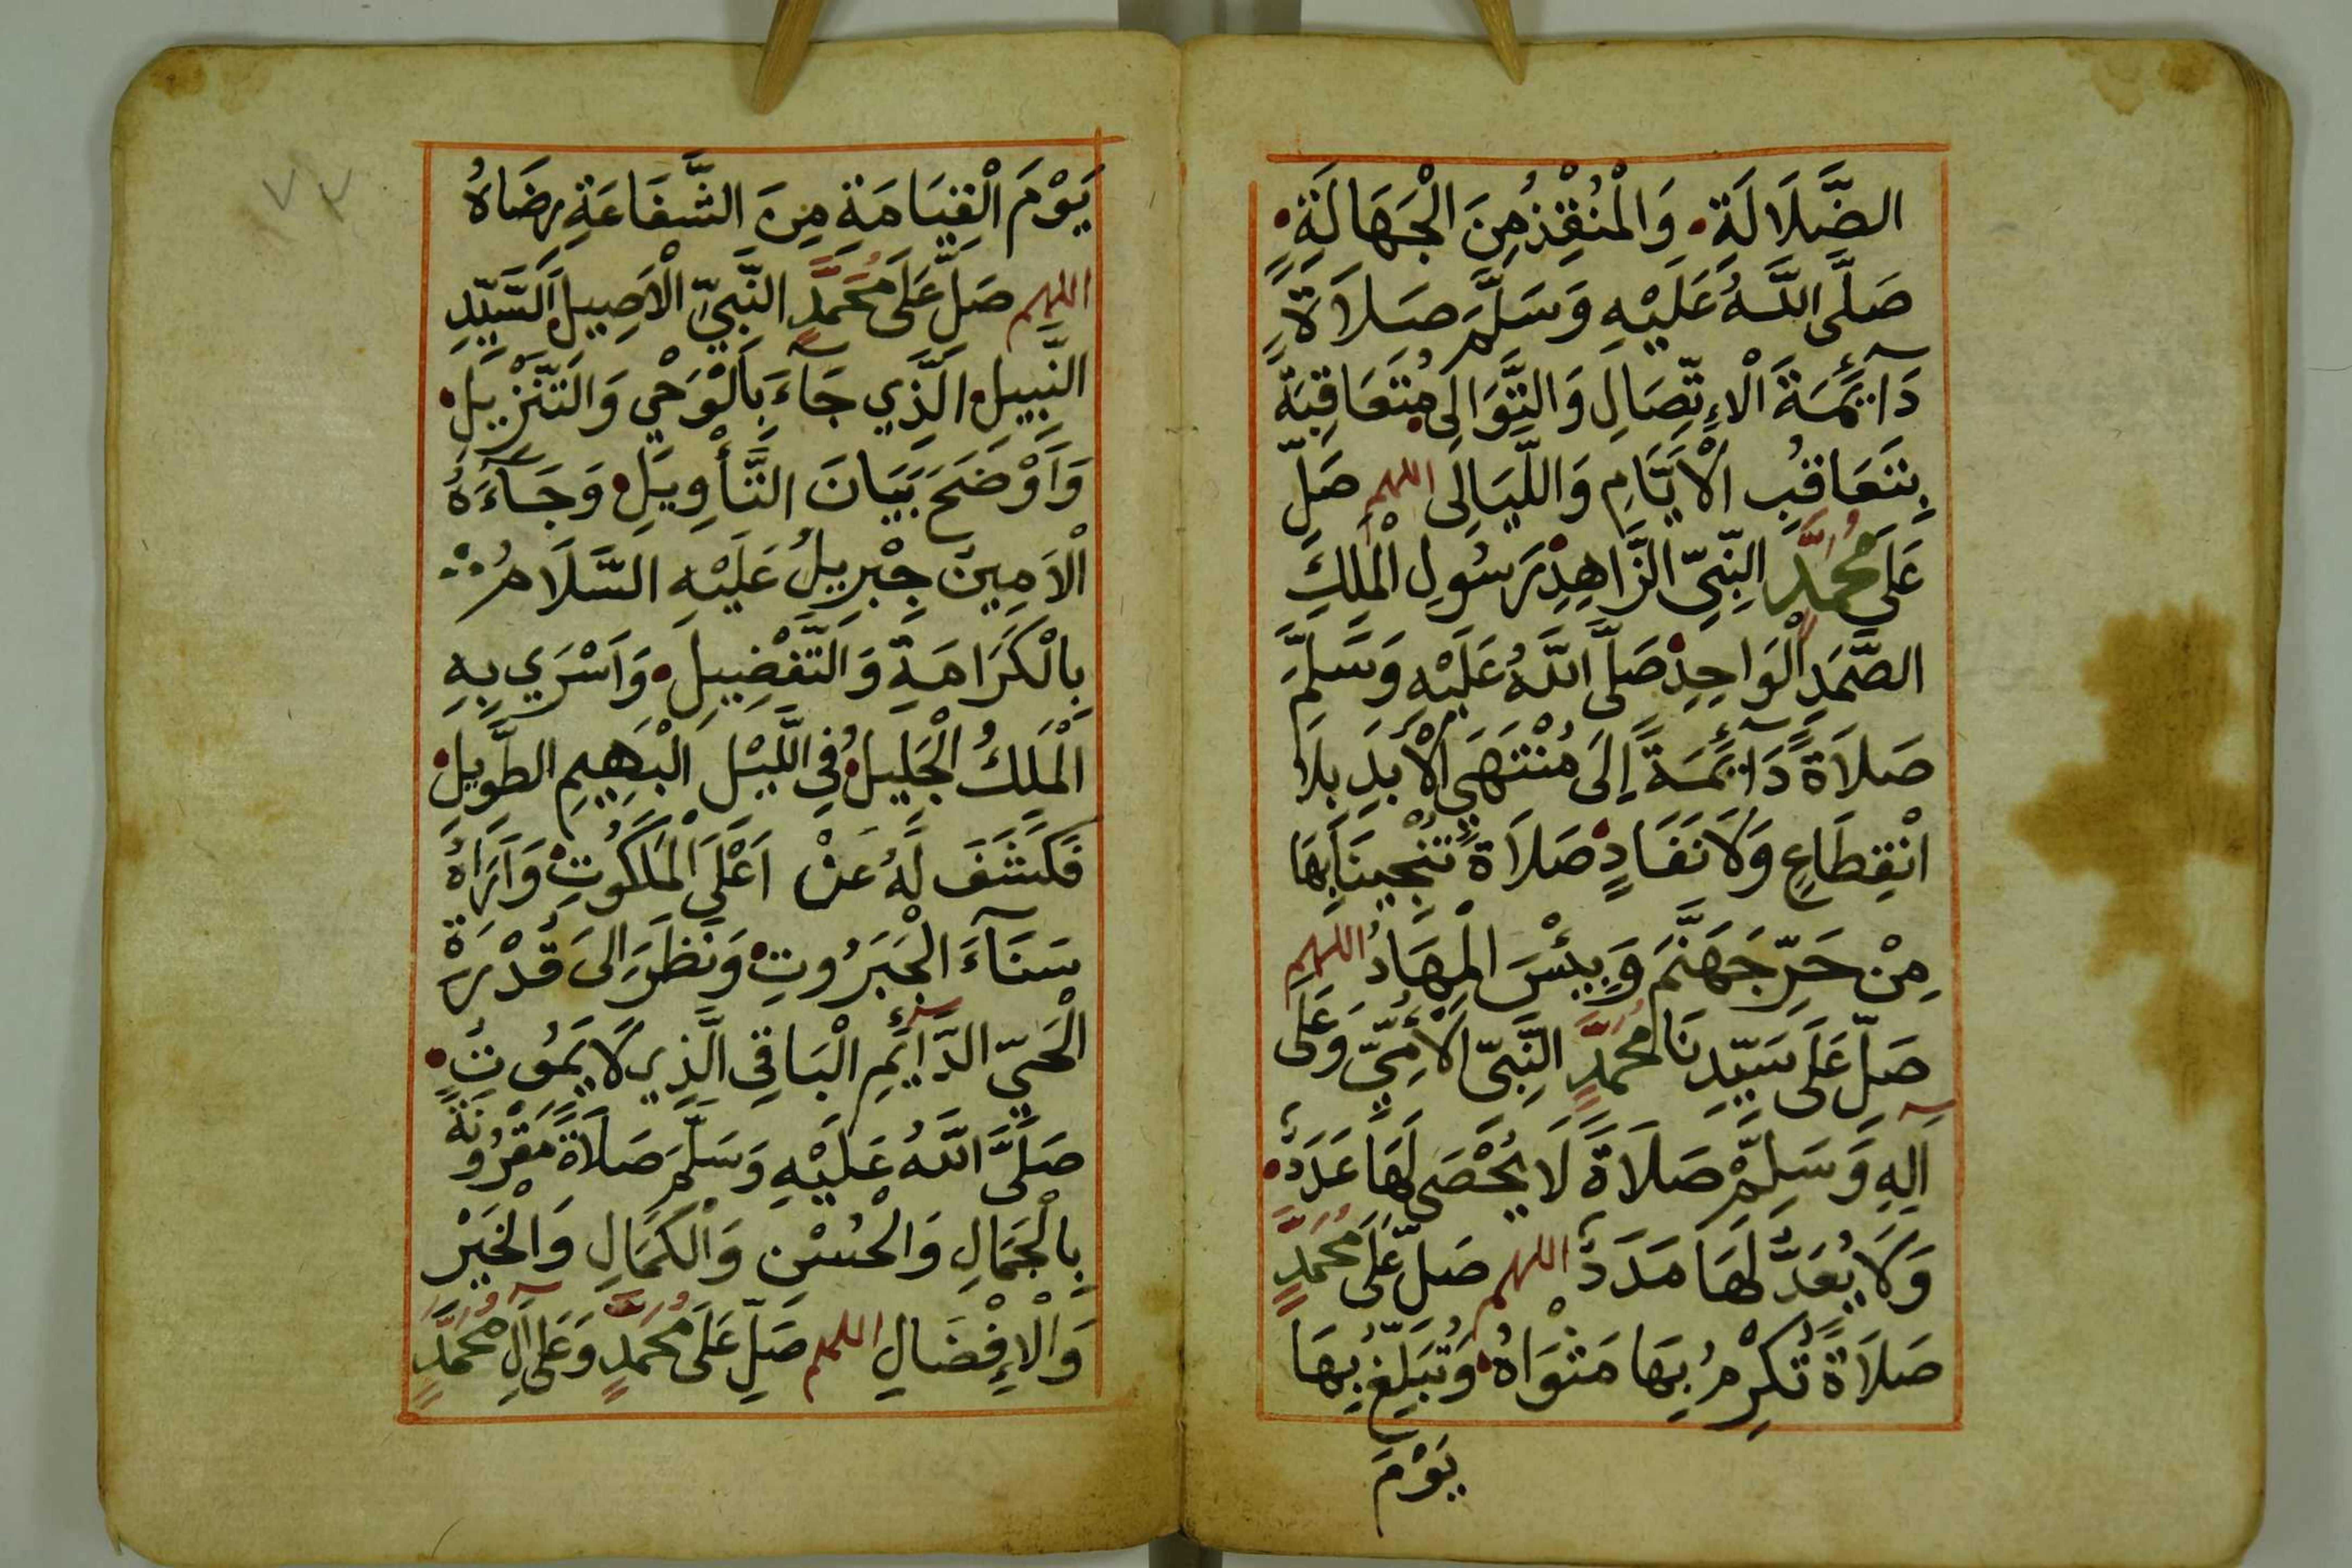 الضَّلَالَةِ • وَالْمُنْقِذُ مِنَ الْجَهَالَةِ •
صَلَّى اللَّهُ عَلَيْهِ وَسَلَّمَ صَلَاةً
دَآئِمَةَ الْاِتِّصَالِ وَالتَّوَالِى • مُتَعَاقِبَةً
بِتَعَاقُبِ الْاَيَّامِ وَاللَّيَالِى اللهم صَلِّ
عَلَى مُحَمَّدٍ النَّبِىِّ الزَّاهِدِ • رَسُولِ الْمَلِكِ
الصَّمَدِ الْوَاحِدِ • صَلَّى اللَّهُ عَلَيْهِ وَسَلَّمَ
صَلَاةً دَآئِمَةً اِلَى مُنْتَهَى الْاَبَدِ بِلَا
انْقِطَاعٍ وَلَا نَفَادٍ • صَلَاةً تُنْجِينَا بِهَا
مِنْ حَرِّ جَهَنَّمَ وَبِئْسَ الْمِهَادُ اللهم
صَلِّ عَلَى سَيِّدِنَا مُحَمَّدٍ النَّبِىِّ الْاُمِّيِّ وَعَلَى
آلِهِ وَسَلِّمْ صَلَاةً لَا يُحْصَى لَهَا عَدَدٌ •
وَلَا يُعَدُّ لَهَا مَدَدٌ اللهم صَلِّ عَلَى مُحَمَّدٍ
صَلَاةً تُكْرِمُ بِهَا مَثْوَاهُ • وَتُبَلِّغُ بِهَا
يَوْمَ
٧٣
يَوْمَ الْقِيَامَةِ مِنَ الشَّفَاعَةِ رِضَاهُ
اللهم صَلِّ عَلَى مُحَمَّدٍ النَّبِيِّ الْاَصِيلِ • اَلسَّيِّدِ
النَّبِيلِ • الَّذِي جَآءَ بِالْوَحْيِ وَالتَّنْزِيلِ •
وَاَوْضَحَ بَيَانَ التَّأْوِيلِ • وَجَآءَهُ
الْاَمِينُ جِبْرِيلُ عَلَيْهِ السَّلَامُ
بِالْكَرَامَةِ وَالتَّفْضِيلِ • وَاَسْرَي بِهِ
الْمَلِكُ الْجَلِيلُ • فِي اللَّيْلِ الْبَهِيمِ الطَّوِيلِ •
فَكَشَفَ لَهُ عَنْ اَعْلَى الْمَلَكُوتِ • وَاَرَاهُ
سَنَآءَ الْجَبَرُوتِ • وَنَظَرَ اِلَى قُدْرَةِ
الْحَيِّ الدَّآئِمِ الْبَاقِى الَّذِي لَا يَمُوتُ •
صَلَّى اللَّهُ عَلَيْهِ وَسَلَّمَ صَلَاةً مَقْرُونَةً
بِالْجَمَالِ وَالْحُسْنِ وَالْكَمَالِ وَالْخَيْرِ
وَالْاِفْضَالِ اللهم صَلِّ عَلَى مُحَمَّدٍ وَعَلَى آلِ مُحَمَّدٍ